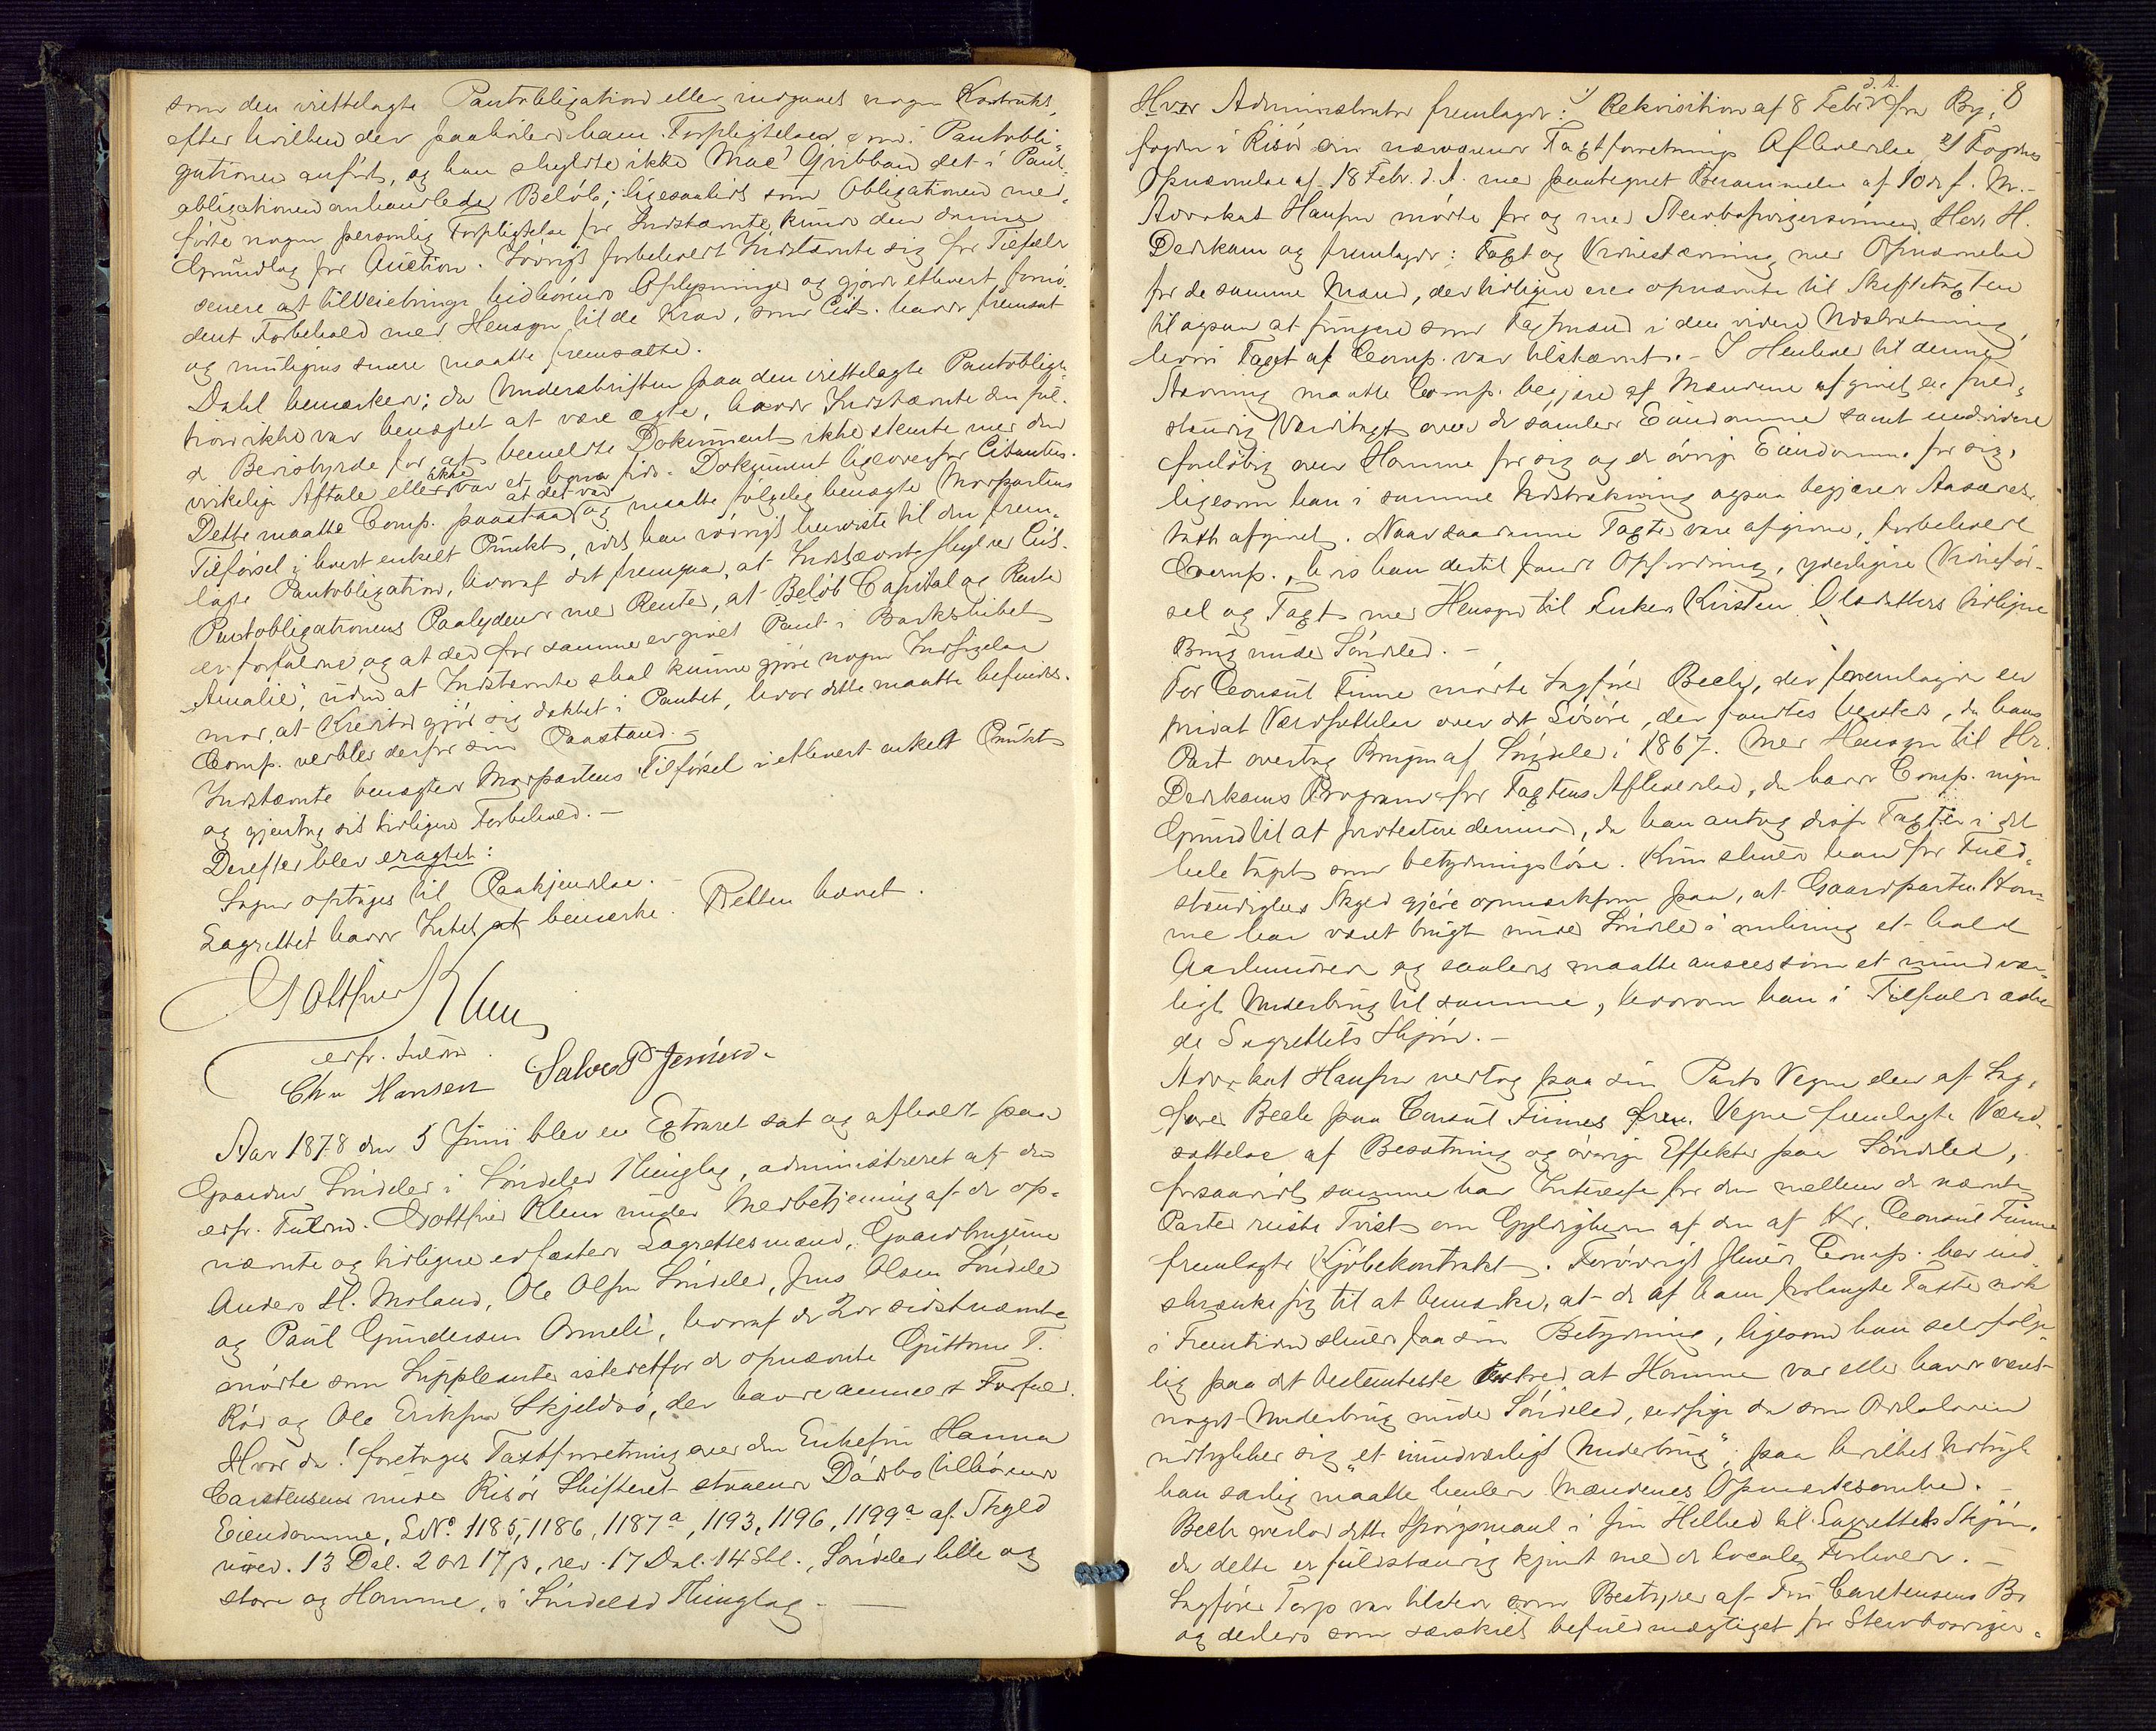 som den irettelagte Pantobligation eller indgaaet nogen Kontrakt,
efter hvilken der paahviler ham Forpligtelser som i Pantobli-
gationen anført, og han skyldte ikke Mac' Gribban det i Pant-
obligationen omhandlede Beløb; ligesaalidt som Obligationen med-
førte nogen personlig Forpligtelse for Indstævnte, kunde den danne
Grundlag for Auction. Iøvrigt forbeholdt Indstævnte sig for Tilfælde
senere at tilveiebringe hidhørende Oplysninger og gjorde ethvert fornø-
dent Forbehold med Hensyn til de Krav, som Cit. havde fremsat
og muligens senere maatte fremsætte.
Dahl bemærker; da Underskriften paa den irettelagte Pantobliga-
tion ikke var benægtet at være ægte, havde Indstævnte den ful-
de Bevisbyrde for at bemeldte Dokument ikke stemte med den
virkelige Aftale eller ikke var et bona fide Dokument ligeoverfor Citanten.
Dette maatte Comp. paastaa at det var og maatte følgelig benægte Modpartens
Tilførsel i hvert enkelt Punkt, idet han iøvrigt henviste til den frem-
lagte Pantobligation, hvoraf det fremgaar, at Indstævnte skylder Cit.
Pantobligationens Paalydende med Renter, at Beløb Capital og Rente
er forfaldne, og at der for samme er givet Pant i Barkskibet
"Amalie", uden at Indstævnte skal kunne gjøre nogen Indsigelse
mod, at Kreditor gjør sig dækket i Pantet, hvor dette maatte befindes.
Comp. verbler derfor sin Paastand. -
Indstævnte benægter Modpartens Tilførsel i ethvert enkelt Punkt
og gjentog sit tidligere Forbehold. -
Derefter blev eragtet:
Sagen optages til Paakjendelse. -
Lagrettet havde Intet at bemærke. Retten hævet.
Gottfried Klem
edsv. Fuldm.
Chr. Hansen Salve T Jensen.
Aar 1878 den 5 Juni blev en Extraret sat og afholdt paa
Gaarden Søndeled i Søndeled Thinglag, administreret af den
edsv. Fuldm. Gottfried Klem under Medbetjening af de op-
nævnte og tidligere edfæstede Lagrettesmænd, Gaardbrugerne
Anders H. Moland, Ole Olsen Søndeled, Jens Olsen Søndeled
og Paul Gundersen Ormeli, hvoraf de 2de sidstnævnte
mødte som Suppleanter istedetfor de opnævnte Guttorm T.
Rød og Ole Eriksen Skjeldsø, der havde anmeldt Forfald.
Hvor da! foretages Taxtforretning over den Enkefru Hanna
Carstensens under Risør Skifteret staaende Dødsbo tilhørende
Eiendomme, LNo. 1185, 1186, 1187a, 1193, 1196, 1199a af Skyld
uved. 13 Dal. 2 Ort 17 β, rev. 17 Dal. 14 Skl., Søndeled lille og
store og Hammen, i Søndeled Thinglag. -
8
Hvor Administrator fremlagde: 1) Rekvisition af 8 Febr. d. A. fra By-
fogden i Risør om nærværende Taxtforretnings Afholdelse, 2) Fogdens
Opnævnelse af 18 Febr. d. A. med paategnet Berammelse af 10de f. M. -
Advokat Hansen mødte for og med Stervbosvigersønnen Herr H.
Dedekam og fremlagde: Taxt og Vidnestævning med Opnævnelse
for de samme Mænd, der tidligere ere opnævnte til Skiftetaxten
til ogsaa at fungere som Taxtmænd i den videre Udstrækning,
hvori Taxt af Comp. var tilstævnt. - I Henhold til denne
Stævning maatte Comp. begjære af Mændene afgivet en fuld-
stændig Værditaxt over de samlede Eiendomme samt endvidere
foreløbig over Hammen for sig og de øvrige Eiendomme for sig,
ligesom han i samme Udstrækning ogsaa begjærede Aasædes-
taxt afgivet. Naar saadanne Taxter vare afgivne, forbeholdt
Comp., hvis han dertil fandt Opfordring, yderligere Vidnefør-
sel og Taxt med Hensyn til Enken Kirsten Olsdatters tidligere
Brug under Søndeled. -
For Consul Finne mødte Sagfører Beck, der fremlagde en
privat Værdsættelse over det Løsøre, der fandtes , da hans
Part overtog Brugen af Søndeled i 1867. Med Hensyn til Hr.
Dedekams Program for Taxtens Afholdelse, da havde Comp. ingen
Grund til at protestere derimod, da han antog disse Taxter i det
hele taget som betydningsløse. Kun skulde han for Fuld-
stændigheds Skyld gjøre opmærksom paa, at Gaardparten Ham-
men har været brugt under Søndeled i omkring et halvt
Aarhundrede og saaledes maatte ansees som et uundvær-
ligt Underbrug til samme, hvorom han i Tilfælde æske-
de Lagrettets Skjøn. -
Advokat Hansen vedtog paa sin Parts Vegne den af Sag-
fører Beck paa Consul Finnes Vegne fremlagte Værd-
sættelse af Besætning og øvrige Effekter paa Søndeled,
forsaavidt samme har Interesse for den mellem de nævnte
Parter reiste Tvist om Gyldigheden af den af Hr. Consul Finne
fremlagte Kjøbekontrakt. Forøvrigt skulde Comp. her ind-
skrænke sig til at bemærke, at de af ham forlangte Taxter nok
i Fremtiden skulde faa sin Betydning, ligesom han selvfølge-
lig paa det bestemteste bestred at Hammen var eller havde været
noget Underbrug under Søndeled, endsige da som Ordlaaten
udtrykker sig "et uundværligt Underbrug", paa hvilket Udtryk
han særlig maatte henlede Mændenes Opmærksomhed. -
Beck overlod dette Spørgsmaal i sin Helhed til Lagrettets Skjøn,
da dette er fuldstændig kjendt med de locale Forhold. -
Sagfører Torp var tilstede som Bestyrer af Fru Carstensens Bo
og derhos som særskilt befuldmægtiget for Stervbosviger-